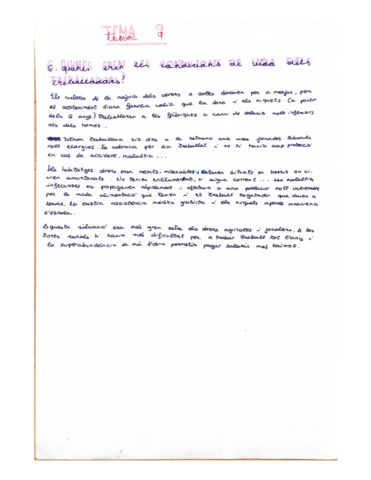 TEMA 9
tema 9
6. QUINES EREN LES CONDICIONS DE VIDA DELS
TREBALLADORS?
Els salaris de la majoria dels obrers a soles donaven per a menjar, per
el sosteniment d'una família calia que la dona i els xiquets (a partir
dels 6 anys) treballaren a les fàbriques a canvi de salaris molt inferiors
als dels homes.
Tothom treballava sis dies a la setmana amb unes jornades laborals
molt llargues. Es cobrava per dia treballat i no hi havia cap protecció
en cas de accident, malaltia...
Els habitatges obrers eren menuts, miserables, estaven situats en barris on vi-
vien amuntonats. No tenien enllumenat, ni aigua corrent... Les malalties
infeccioses es propagaven ràpidament i afectava a una població molt vulnerable
per la mala alimentació que tenien i el treball esgotador que duien a
terme. No existia assistència mèdica gratuïta i els xiquets apenes anaven a
l'escola.
Aquesta situació era més greu entre els obrers agrícoles i jornalers. A les
zones rurals hi havia més dificultat per a trobar treball tot l'any i
la superabundància de mà d'obra permetia pagar salaris més baixos.